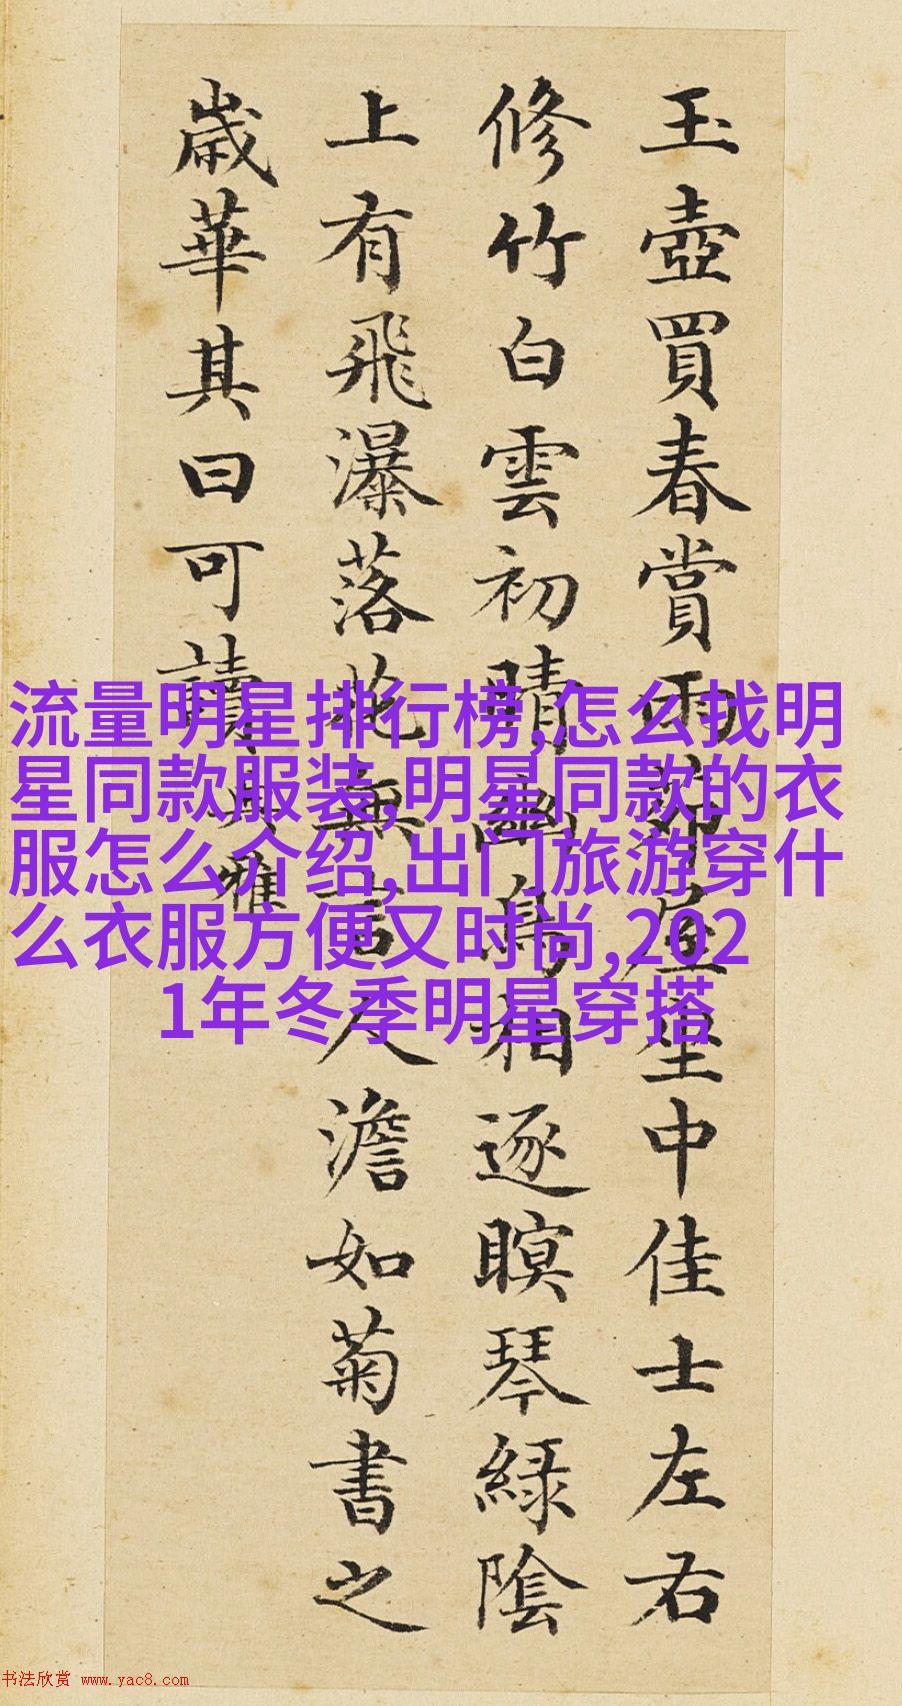 玉壺買春賞雨茆屋坐中佳士左右
修竹白雲初晴幽鳥相逐瞑琴緑陰
上有飛瀑落花無言人澹如菊書之
歲華其曰可讀 典雅
流量明星排行榜,怎么找明
星同款服装,明星同款的衣
服怎么介绍,出门旅游穿什
么衣服方便又时尚,202
1年冬季明星穿搭
书法欣赏 www.yac8.com